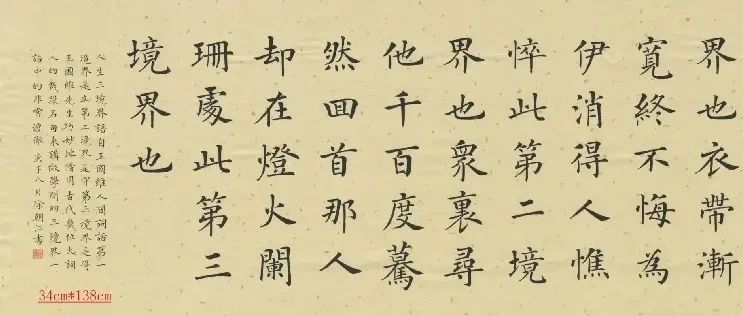 界也衣帶漸
寬終不悔為
伊消得人憔
悴此第二境
界也衆裏尋
他千百度驀
然回首那人
却在燈火闌
珊處此第三
境界也
人生三境界語自王國維人間詞話第一
境界是立第二境界是守第三境界是得
王國維先生巧妙地借用古代幾位大詞
人的幾段名句來講做學問的三境界一
語中的非常 庚子八月徐朝江書
34cm*138cm